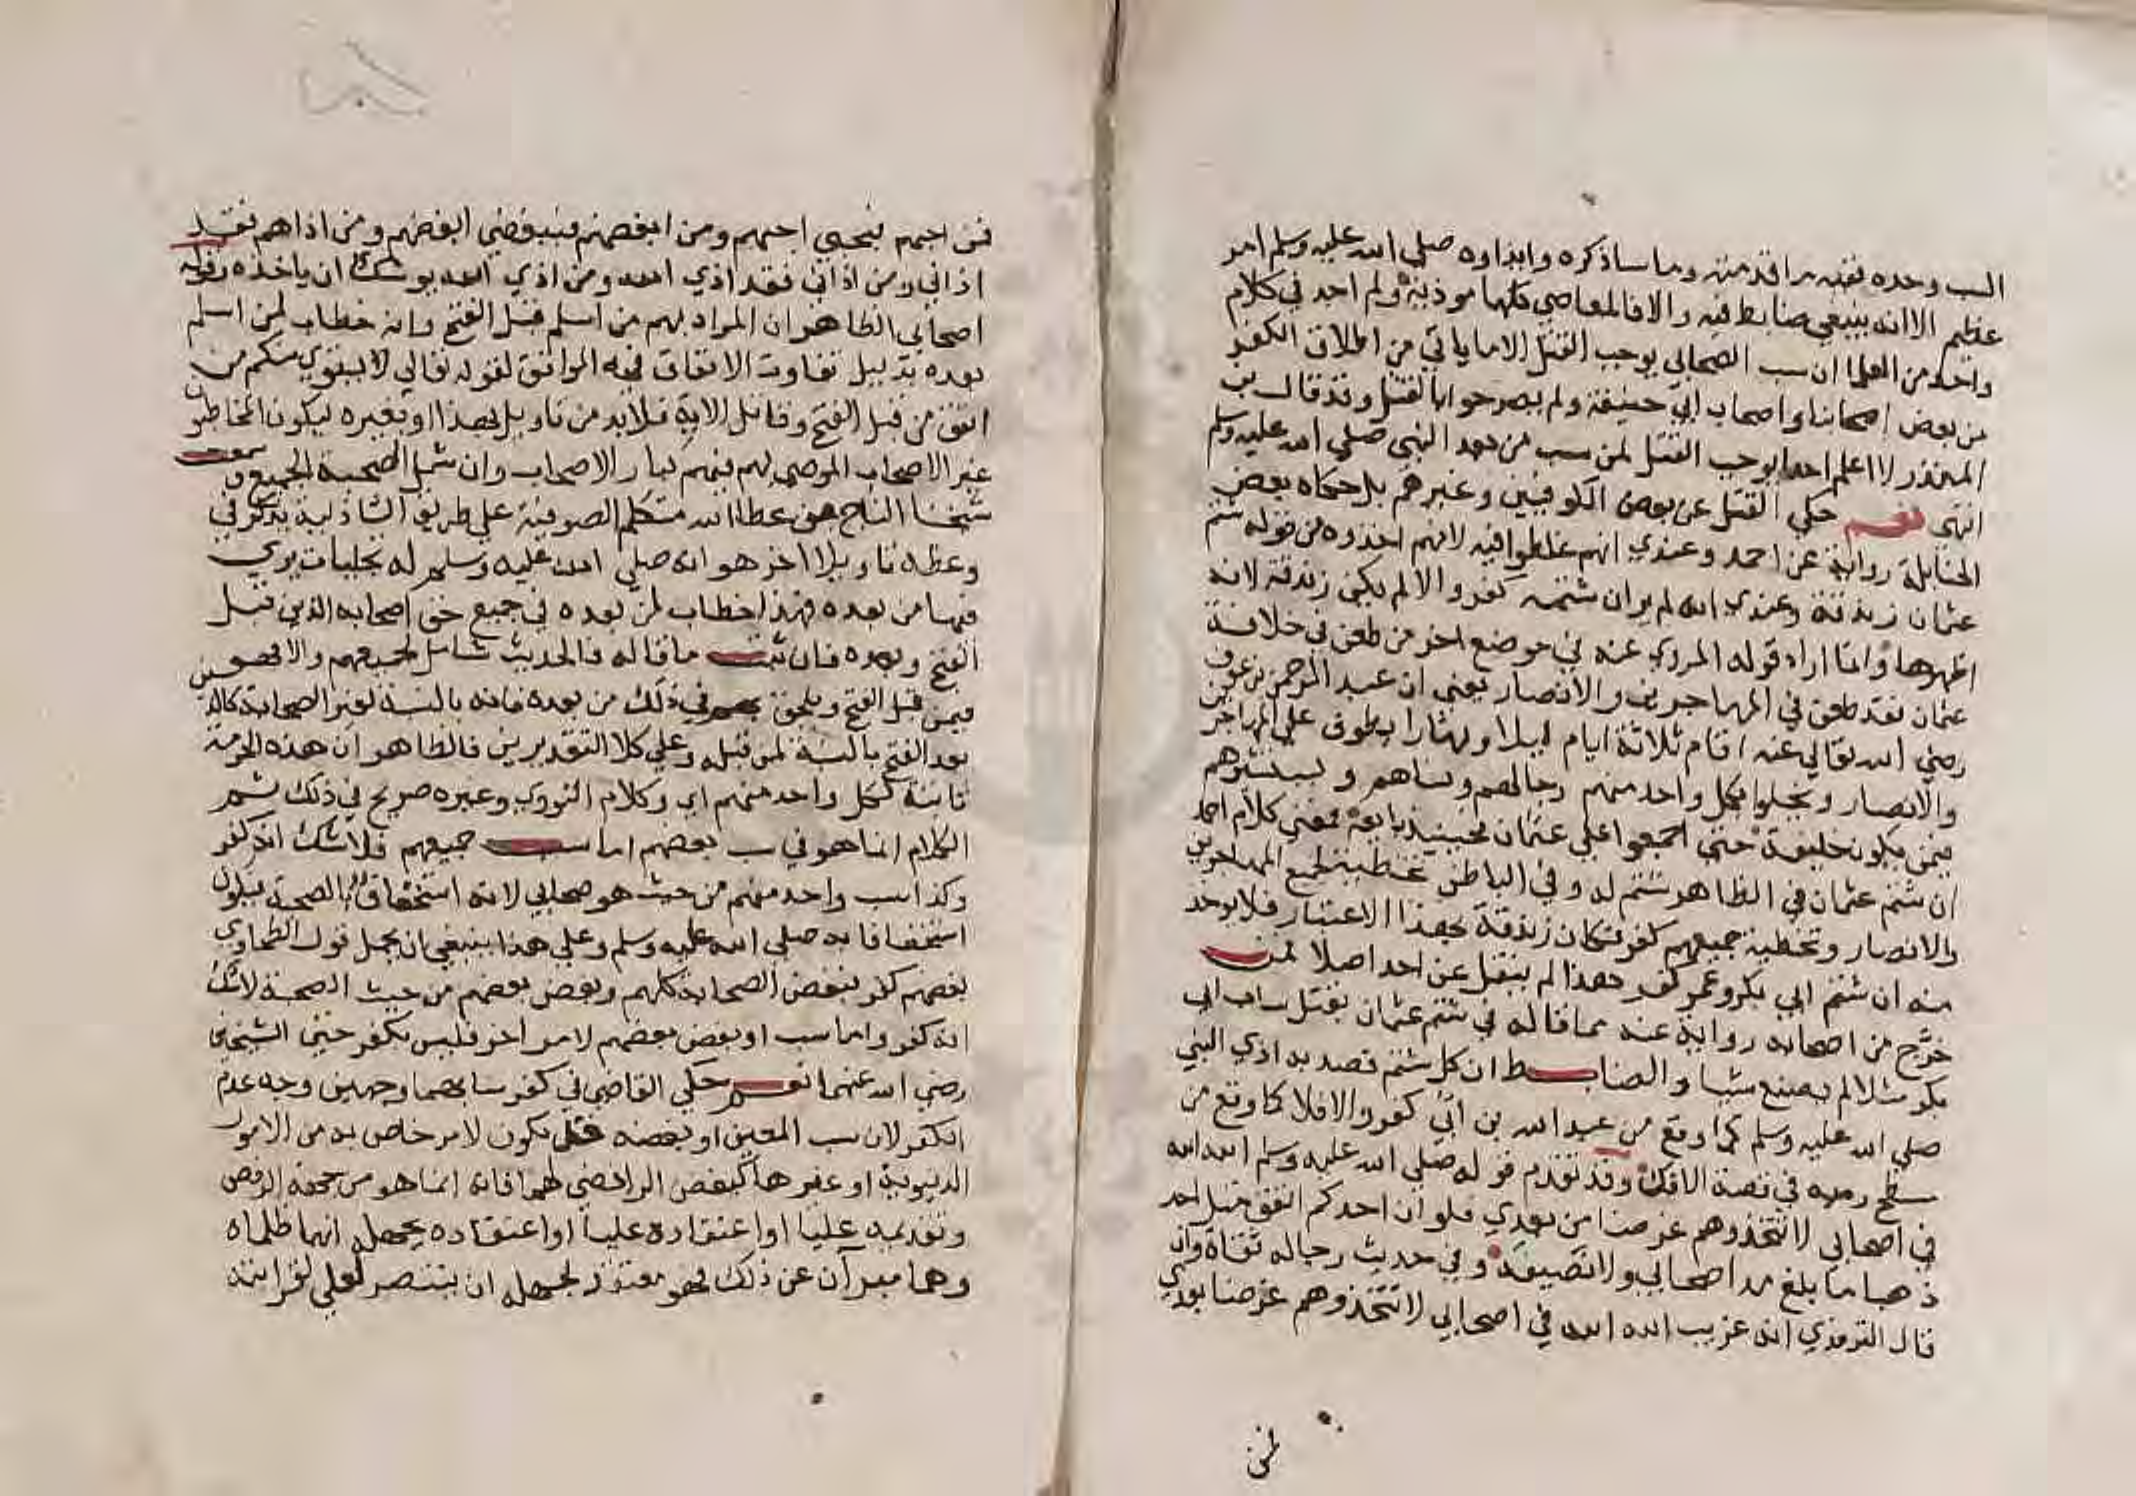 السب وحده نفيه ما قدمته وما ساذكره وايذاوه صلي الله عليه وسلم امر
عظيم الا انه ينبغي ضابط فيه والا فالمعاصي كلها موذية ولم اجد في كلام
واحد من العلما ان سب الصحابي يوجب القتل الا ما ياتي من اطلاق الكفر
من بعض اصحابنا واصحاب ابي حنيفة ولم يصرحوا بالقتل وقد قال بن
المنذر لا اعلم احدا يوجب القتل لمن سب من بعد النبي صلي الله عليه وسلم
انتهي نعم حكي القتل عن بعض الكوفيين وغيرهم بل حكاه بعض
الحنابلة رواية عن احمد وعندي انهم غلطوا فيه لانهم اخذوه من قوله شتم
عثمان زندقة وعندي انه لم يرد ان شتمه كفر والا لم يكن زندقة لانه
اظهرها وانما اراد قوله المروي عنه في موضع اخر من طعن في خلافة
عثمان فقد طعن في المهاجرين والانصار يعني ان عبد الرحمن بن عوف
رضي الله تعالي عنه اقام ثلاثة ايام ليلا ونهارا يطوف علي المهاجرين
والانصار ويخلوا بكل واحد منهم رجالهم ونساهم ويستشيرهم
فيمن يكون خليفة حتي اجمعوا علي عثمان فحينيذ بايعه فمعني كلام احمد
ان شتم عثمان في الظاهر شتم له وفي الباطن تخطية لجميع المهاجرين
والانصار وتخطية جميعهم كفر فكان زندقة بهذا الاعتبار فلا يوخذ
منه ان شتم ابي بكر وعمر كفر هذا لم ينقل عن احد اصلا فمن
خرج من اصحابه رواية عنه مما قاله في شتم عثمان بقتل ساب ابي
بكر مثلا لم يصنع شيا والضابط ان كل شتم قصد به اذي النبي
صلي الله عليه وسلم كما وقع من عبد الله بن ابي كفر والا فلا كما وقع من
مسطح رميه في قصة الافك وقد تقدم قوله صلي الله عليه وسلم الله الله
في اصحابي لا تتخذوهم غرضا من بعدي فلو ان احدكم انفق مثل احد
ذهبا ما بلغ مد اصحابي ولا نصيفه وفي حديث رجاله ثقاة وان
قال الترمذي انه غريب الله الله في اصحابي لا تتخذوهم غرضا بعدي
فمن
فمن احبهم فبحبي احبهم ومن ابغضهم فببغضي ابغضهم ومن اذاهم فقد
اذاني ومن اذاني فقد اذي الله ومن اذي الله يوشك ان ياخذه وقوله
اصحابي الظاهر ان المراد بهم من اسلم قبل الفتح وانه خطاب لمن اسلم
بعده بدليل تفاوت الانفاق فيه الموافق لقوله تعالي لا يستوي منكم من
انفق من قبل الفتح وقاتل الاية فلا بد من تاويل بهذا او بغيره ليكون المخاطبون
غير الاصحاب الموصي بهم فيهم كبار الاصحاب وان شمل الصحبة الجميع وسمعت
شيخنا التاج بن عطا الله متكلم الصوفية علي طريق الشاذلية يذكر في
وعظه تاويلا اخر هو انه صلي الله عليه وسلم له تجليات يري
فيها من بعده فهذا خطاب لمن بعده في جميع حق اصحابه الذين قبل
الفتح وبعده فان ثبت ما قاله فالحديث شامل لجميعهم والا فهو
فيمن قبل الفتح ويلحق بهم في ذلك من بعده فانه بالنسبة لغير الصحابة كالذي
بعد الفتح بالنسبة لمن قبله وعلي كلا التقديرين فالظاهر ان هذه الحرمة
ثابتة لكل واحد منهم اي وكلام النووي وغيره صريح في ذلك ثم
الكلام انما هو في سب بعضهم اما سب جميعهم فلا شك انه كفر
وكذا سب واحد منهم من حيث هو صحابي لانه استخفاف بالصحبة فيكون
استخفافا به صلي الله عليه وسلم وعلي هذا ينبغي ان يحمل قول الطحاوي
بغضهم كفر فبغض الصحابة كلهم وبغض بعضهم من حيث الصحبة لا شك
انه كفر واما سب او بغض بعضهم لامر اخر فليس بكفر حتي الشيخين
رضي الله عنهما نعم حكي القاضي في كفر سابهما وجهين وجه عدم
الكفر لان سب المعين او بغضه قد يكون لامر خاص به من الامور
الدنيوية او غيرها كبغض الرافضي لهما فانه انما هو من جهة الرفض
وتقديمه عليا او اعتقاده عليا او اعتقاده بجهله انهما ظلماه
وهما مبرآن عن ذلك فهو معتقد لجهله ان ينتصر لعلي لقرابته